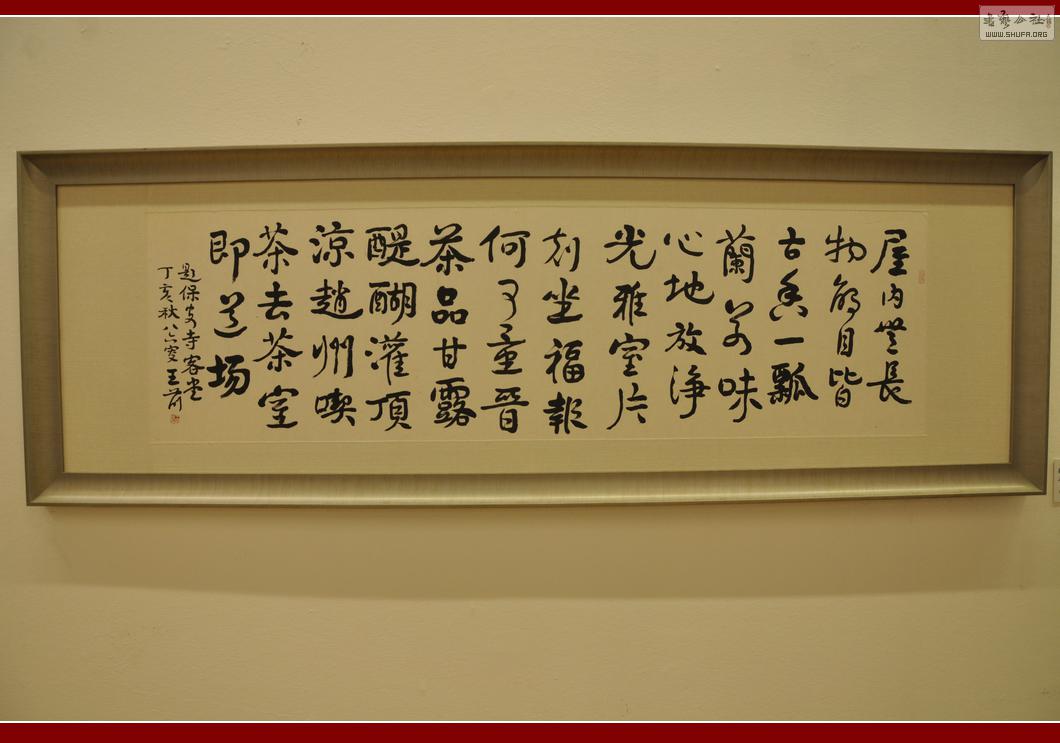 屋内無長
物滿目皆
古香一瓢
蘭芳味
心地放淨
光雅室片
刻坐福報
何可量晉
茶品甘露
醍醐灌頂
涼趙州喫
茶去茶室
即道场
題保安寺客堂
丁亥秋八六叟王蘧
WWW.SHUFA.ORG